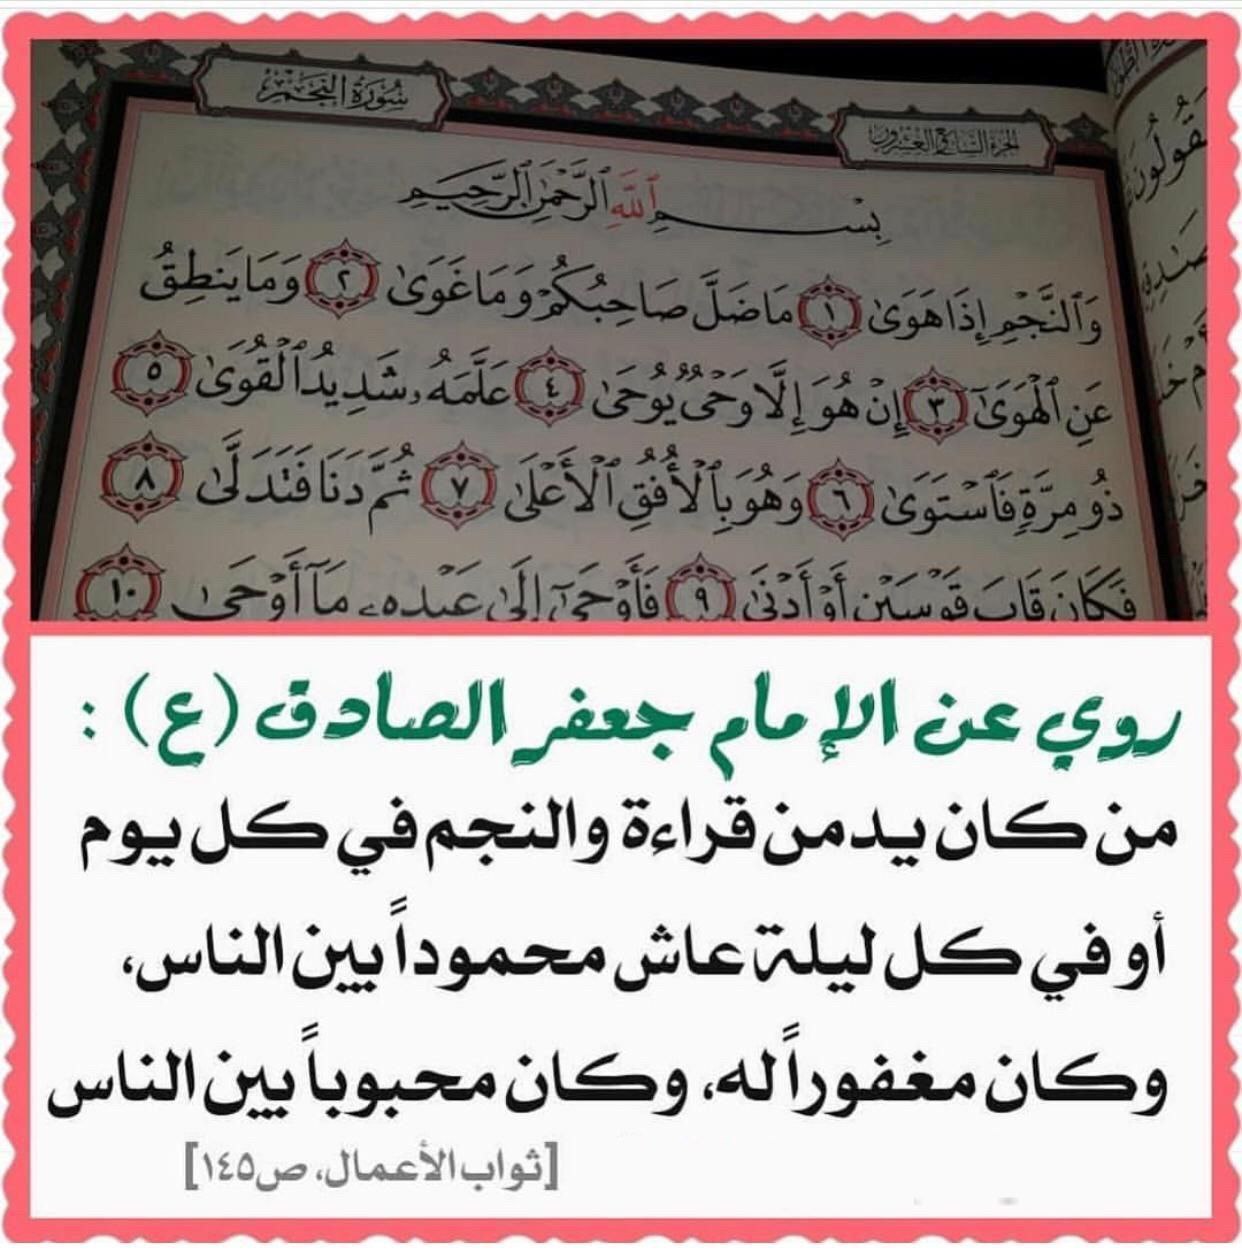 سُورَةُ النَّجْمِ
الجزء السابع والعشرون
بِسْمِ ٱللَّهِ ٱلرَّحْمَٰنِ ٱلرَّحِيمِ
وَٱلنَّجْمِ إِذَا هَوَىٰ ١ مَا ضَلَّ صَاحِبُكُمْ وَمَا غَوَىٰ ٢ وَمَا يَنطِقُ
عَنِ ٱلْهَوَىٰٓ ٣ إِنْ هُوَ إِلَّا وَحْيٌ يُوحَىٰ ٤ عَلَّمَهُۥ شَدِيدُ ٱلْقُوَىٰ ٥
ذُو مِرَّةٍ فَٱسْتَوَىٰ ٦ وَهُوَ بِٱلْأُفُقِ ٱلْأَعْلَىٰ ٧ ثُمَّ دَنَا فَتَدَلَّىٰ ٨
فَكَانَ قَابَ قَوْسَيْنِ أَوْ أَدْنَىٰ ٩ فَأَوْحَىٰٓ إِلَىٰ عَبْدِهِۦ مَآ أَوْحَىٰ ١٠
روي عن الإمام جعفر الصادق (ع) :
من كان يدمن قراءة والنجم في كل يوم
أو في كل ليلة عاش محموداً بين الناس،
وكان مغفوراً له، وكان محبوباً بين الناس
[ثواب الأعمال، ص١٤٥]